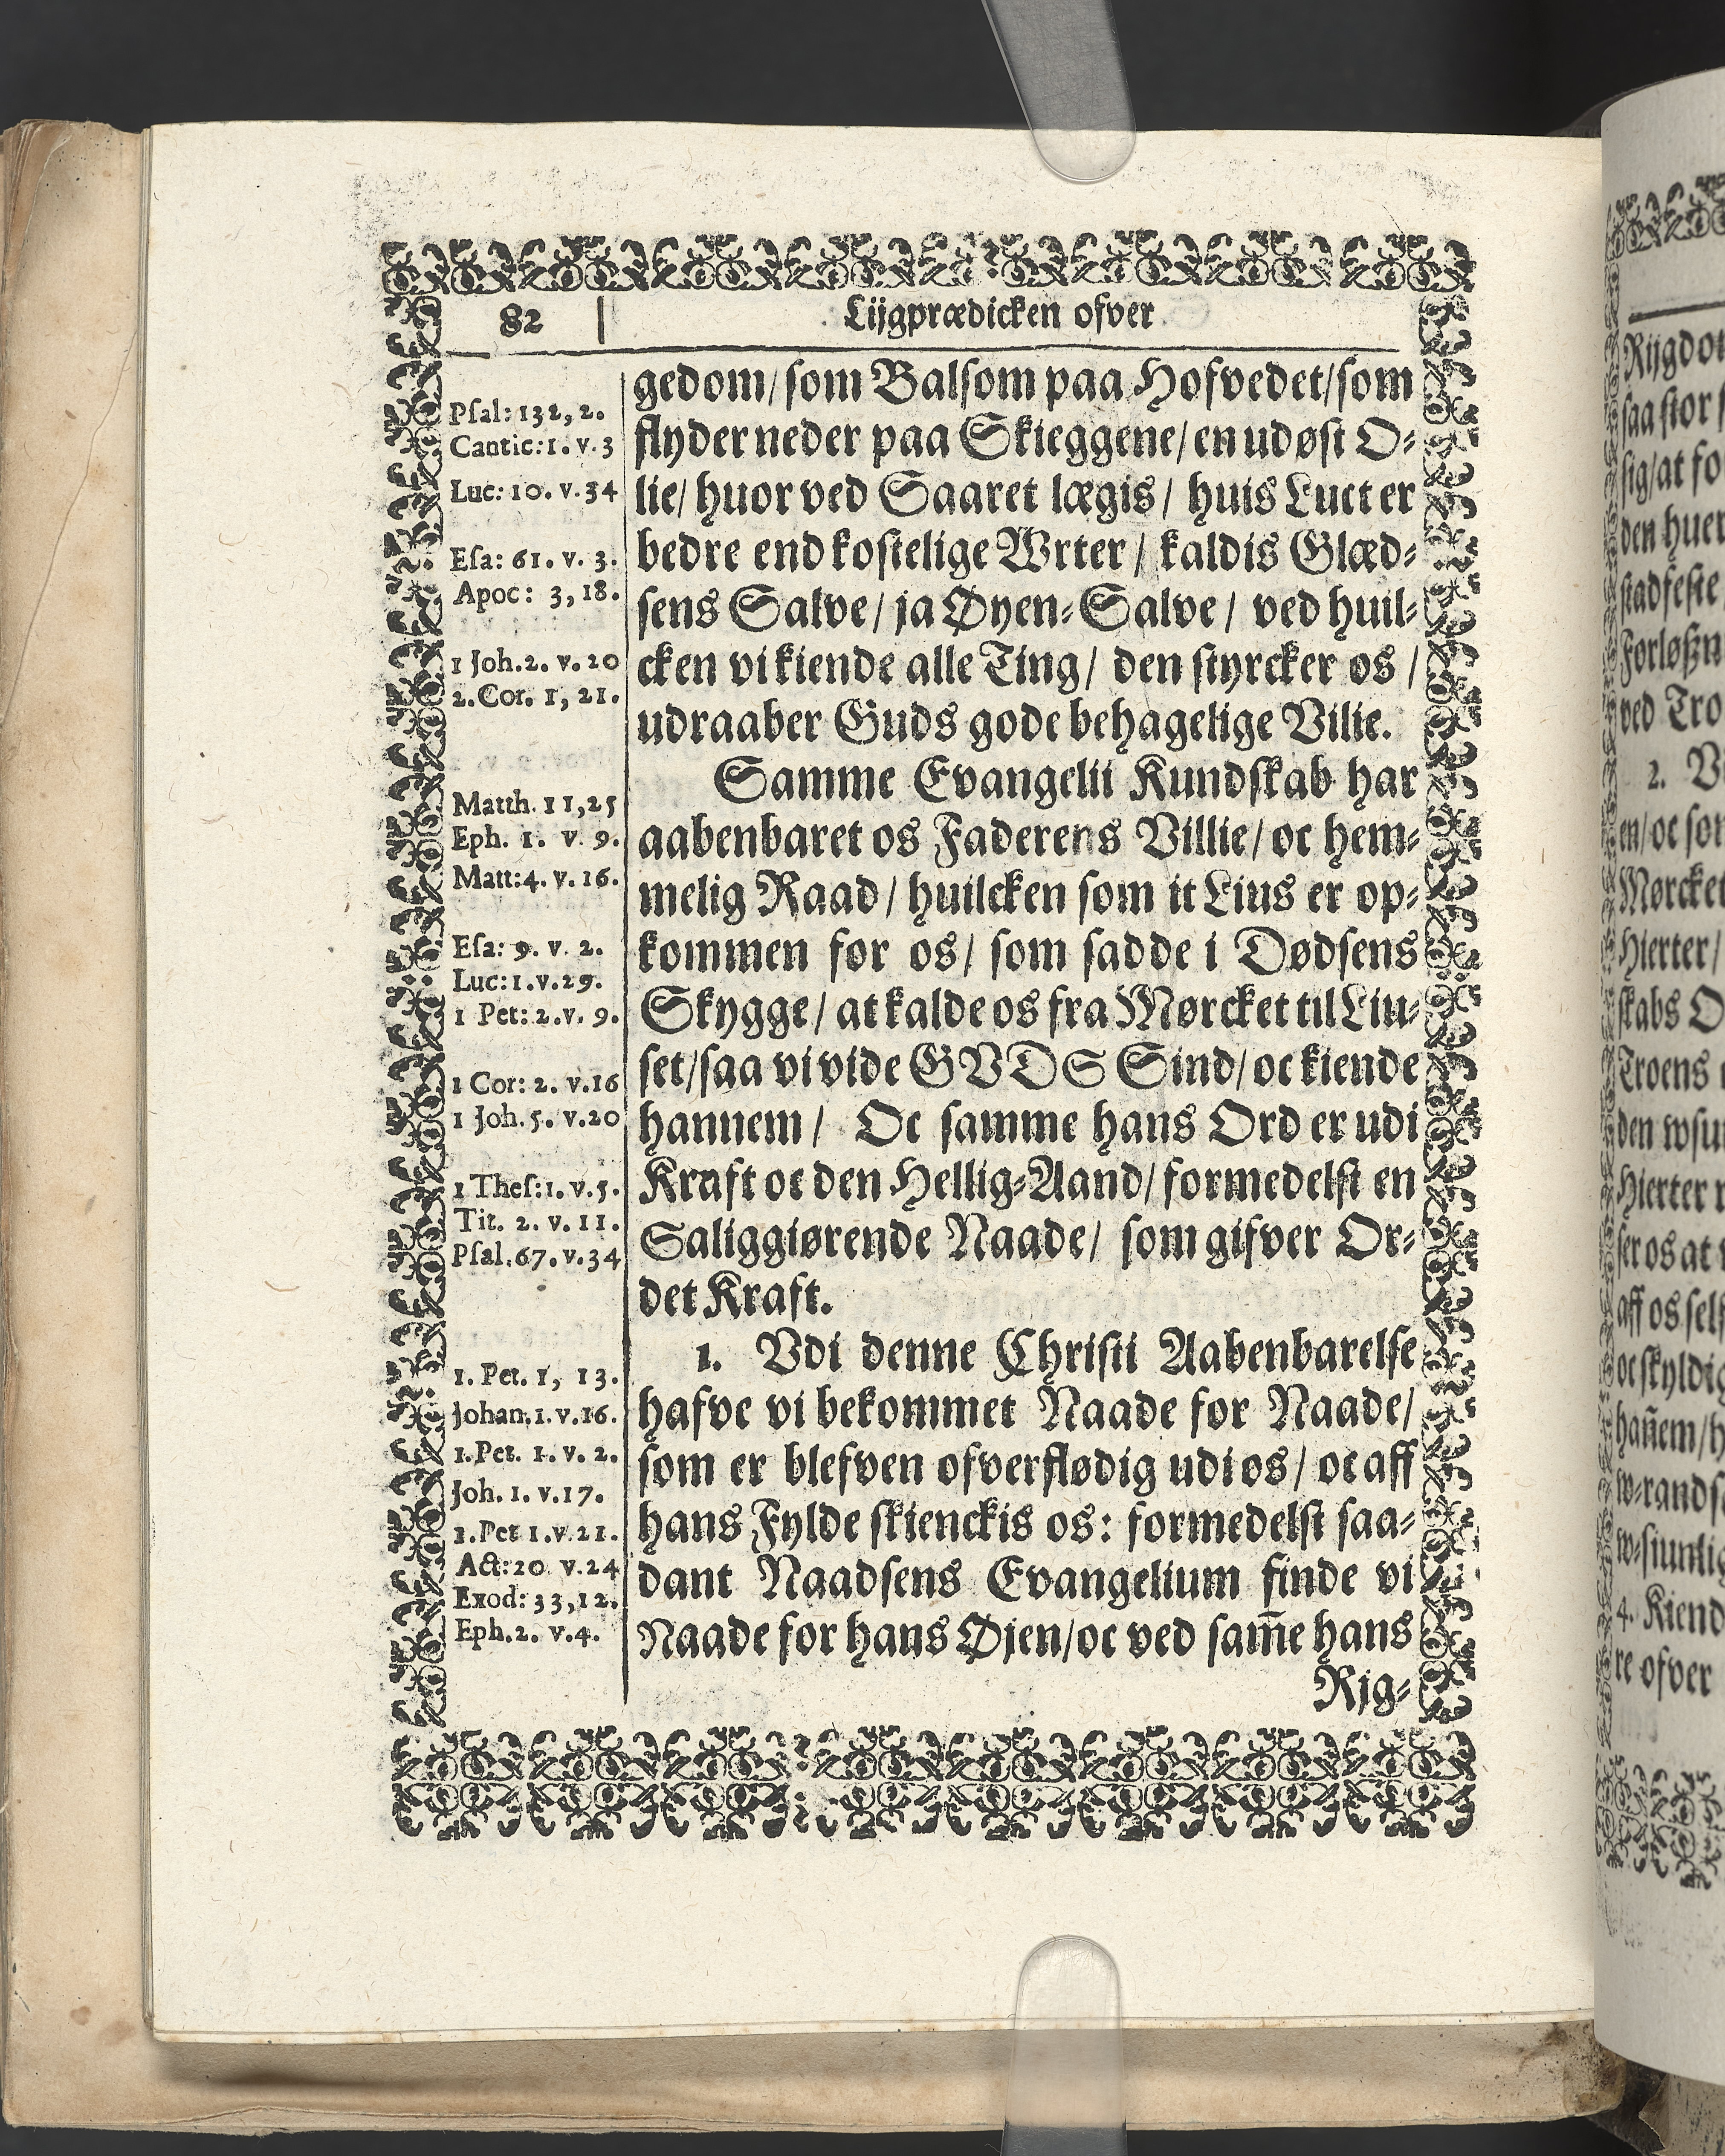 82
Lijgprædicken ofver
gedom/ som Balsom paa Hofvedet/ som
flyder neder paa Skieggene/ en udøst O-
lie/ huor ved Saaret lægis / huis Luct er
bedre end kostelige Wrter / kaldis Glæd-
sens Salve/ ja Øyen-Salve / ved huil-
cken vi kiende alle Ting/ den styrcker os /
udraaber Guds gode behagelige Vilie.
Samme Evangelii Kundskab har
aabenbaret os Faderens Villie/ oc hem-
melig Raad / huilcken som it Lius er op-
kommen for os/ som sadde i Dødsens
Skygge / at kalde os fra Mørcket til Liu-
set/ saa vi vide GVDS Sind/ oc kiende
hannem / Oc samme hans Ord er udi
Kraft oc den Hellig-Aand/ formedelst en
Saliggiørende Naade/ som gifver Or-
det Kraft.
1. Vdi denne Christi Aabenbarelse
hafve vi bekommet Naade for Naade/
som er blefven ofverflødig udi os/ oc aff
hans Fylde skienckis os: formedelst saa-
dant Naadsens Evangelium finde vi
Naade for hans Øjen/ oc ved sam̃e hans
Rjg-
Psal: 132, 2.
Cantic: 1. v. 3
Luc: 10. v. 34
Esa: 61. v. 3.
Apoc: 3, 18.
1 Joh. 2. v. 20
2. Cor. 1, 21.
Matth. 11, 25
Eph. 1. v. 9.
Matt: 4. v. 16.
Esa: 9. v. 2.
Luc: 1. v. 29.
1 Pet: 2. v. 9.
1 Cor: 2. v. 16
1 Joh. 5. v. 20
1 Thes: 1. v. 5.
Tit. 2. v. 11.
Psal. 67. v. 34
1. Pet. 1, 13.
Johan. 1. v. 16.
1. Pet. 1. v. 2.
Joh. 1. v. 17.
1. Pet 1. v. 21.
Act: 20 v. 24
Exod: 33, 12.
Eph. 2. v. 4.
saa stor
sig/ at fo
den huer
stadfeste
ved Tro
2. V
Mørcket
Hierter/
skabs O
Troens
Hierter
aff os self
oc skyldig
4. Kiend
re ofver